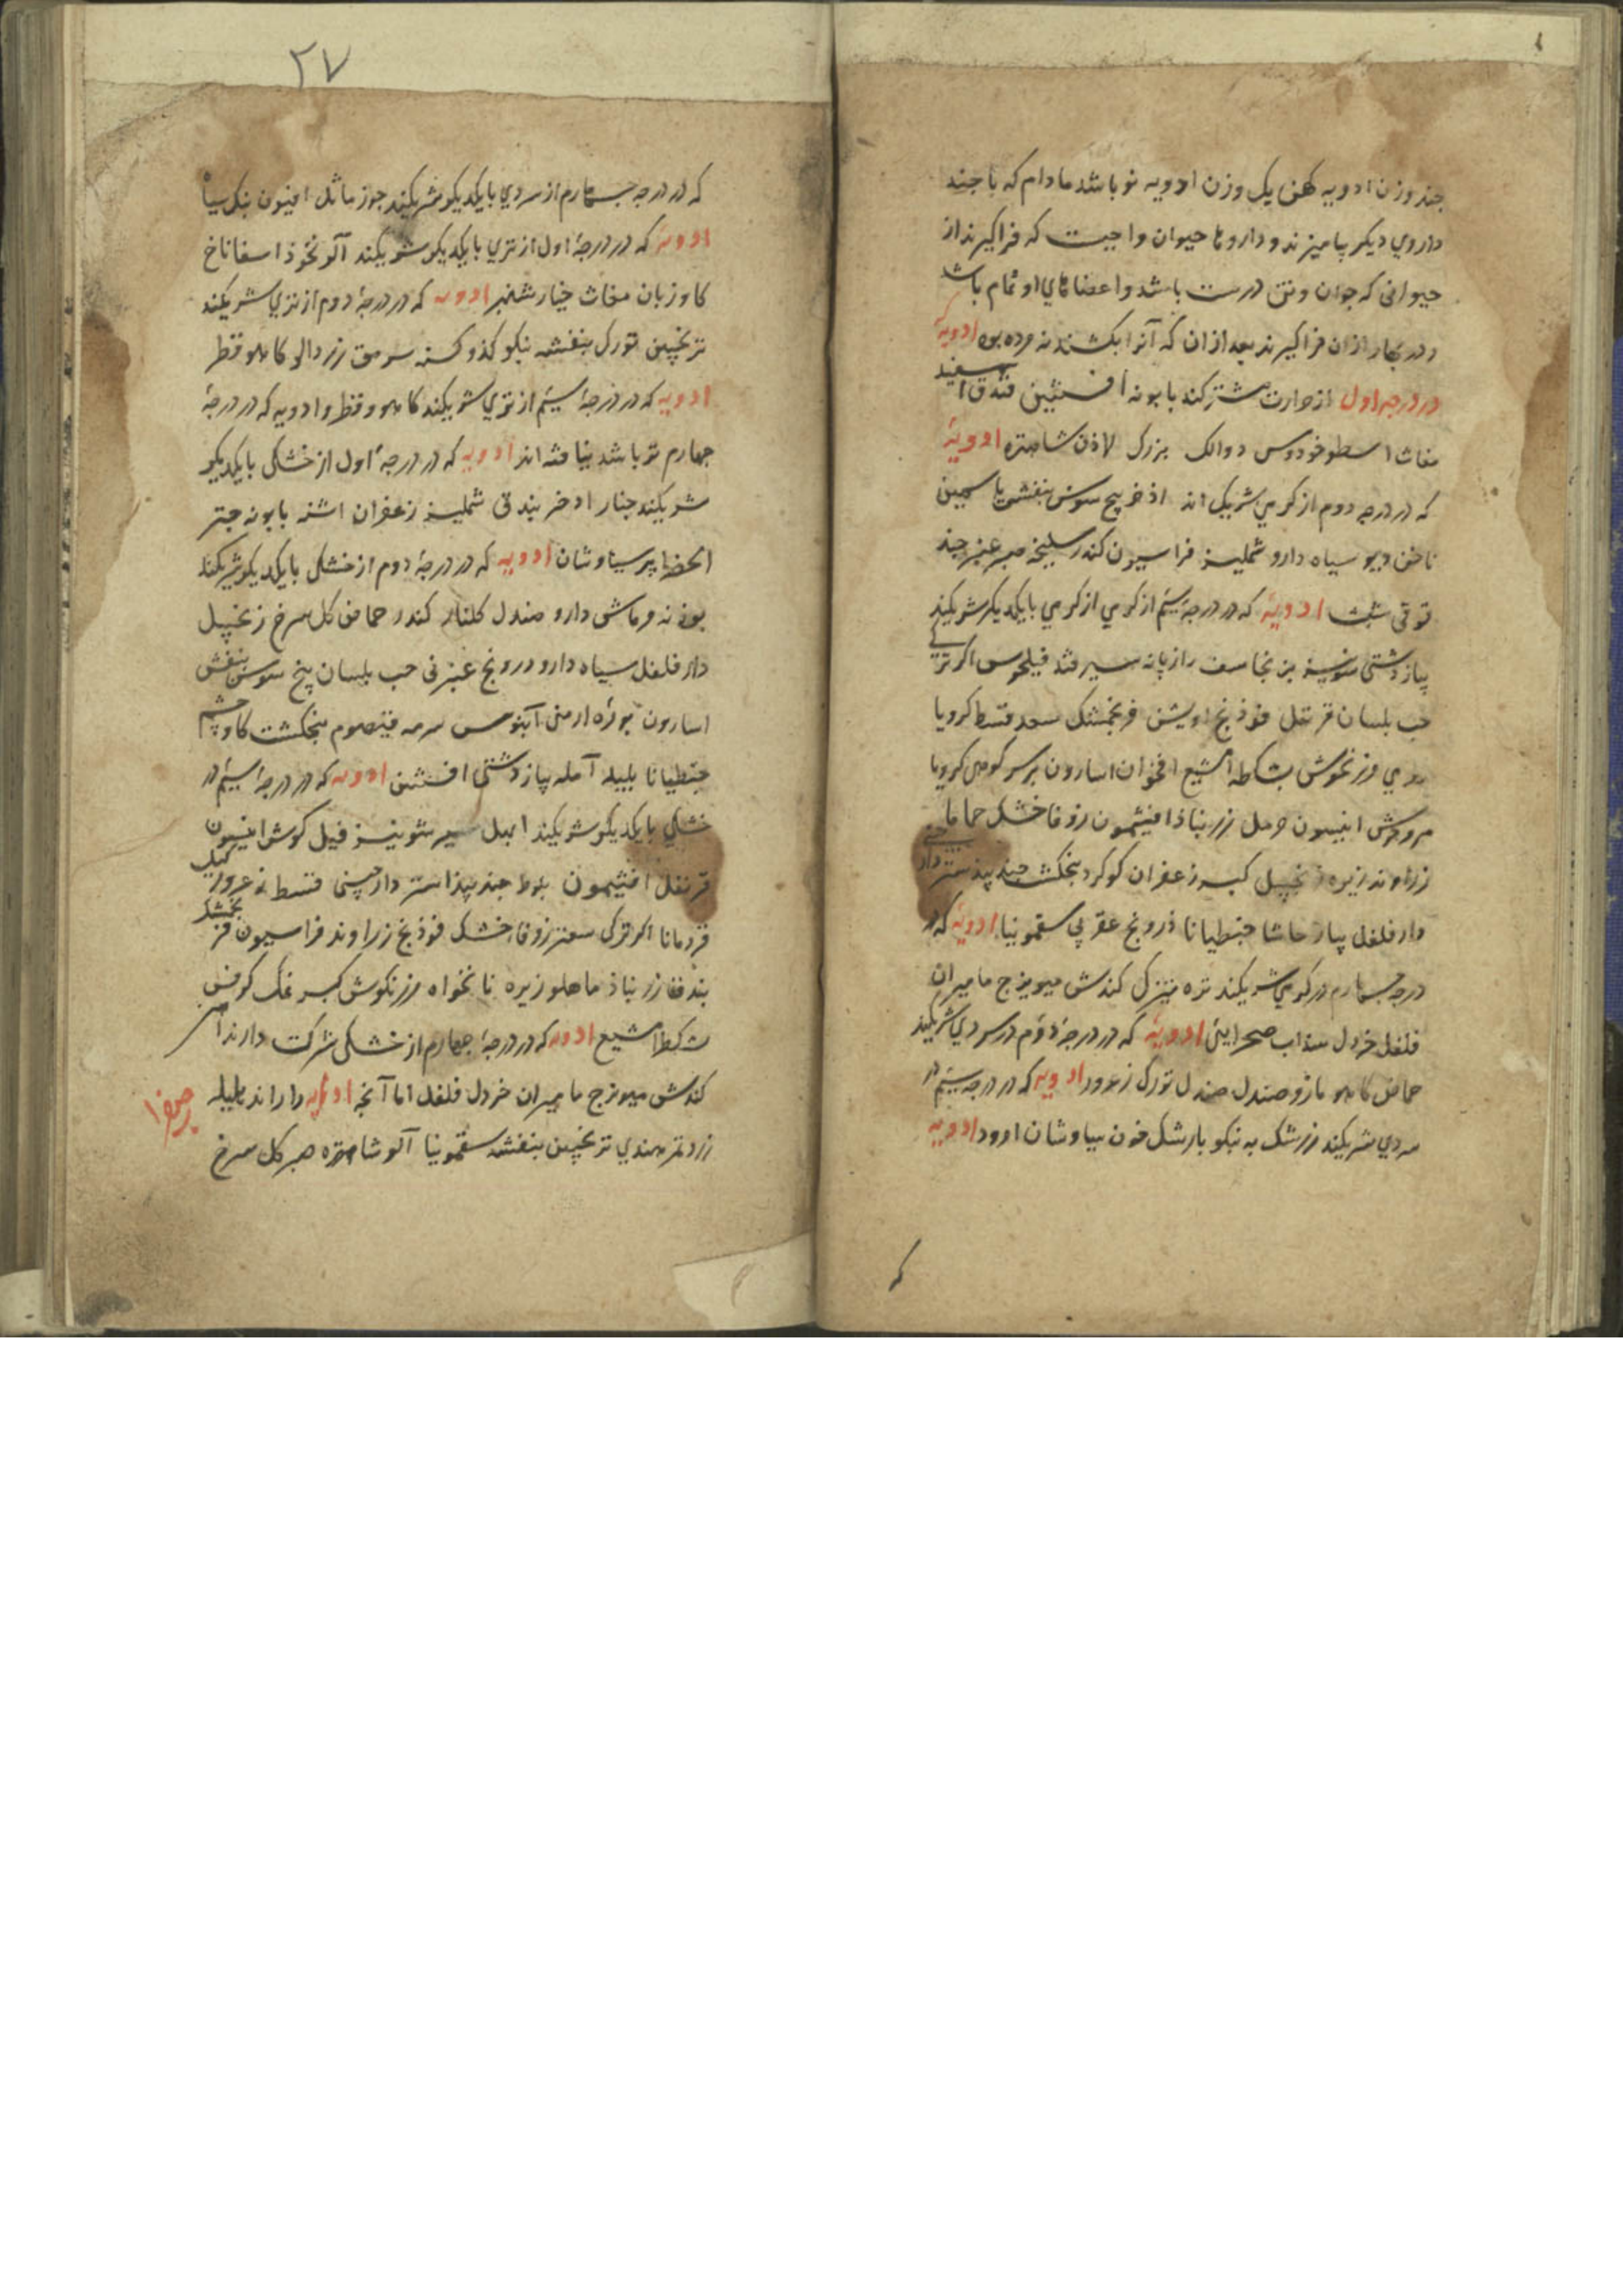 چند وزن ادویه کهن یک وزن ادویه نو باشد مادام که با چند
داروي دیکر بیامیزند و داروها حیوان واجبست که فراکیرند از
حیوانی که جوان و تن درست باشد و اعضاهاي او تمام باشد
و در بهار ازان فراکیرند بعد ازان که آنرا بکشند نه مرده بود ادویهٔ که
در درجه اول از حرارت مشترکند بابونه افسنتین فندق سفید
مغاث اسطوخودوس دوالک بزرک لاذن شاهتره ادویهٔ
که در درجه دوم از کرمي شریک اند اذخر بیخ سوسن بنفش یاسمین
ناخن دیو سیاه دارو شملیز فراسیون کندر سلیخه صبر عنبر چند
توقی شبت ادویهٔ که در درجهٔ سیم از کرمي از کرمي بایکدیکر شریکند
پیاز دشتی شونیز برنجاسف رازیانه سیر فیلجوس اکر ترکی
حب بلسان قرنفل فوذنج اویشن فرنجمشک سعد قسط کرویا
رومي مرزنکوش مشکطرامشیع اقحوان اسارون کرویا
مروکوش انیسون حرمل زرنباد افیثمون زوفا خشک حماما
زراوند زیره زنجبیل کبر زعفران کوکرد پنجنکشت جندبیذستر دار چینی
دار فلفل پیاز حاشا جنطیانا درونج عقربي سقمونیا ادویهٔ که در
درجه چهارم در کرمي شریکند تره تیزک کندش میویزج مامیران
فلفل خردل سداب صحرایئ ادویهٔ که در درجهٔ دوم در سردي شریکند
حماض کاهو مازو صندل تورک زعرور ادویه که در درجه سیم در
سردي شریکند زرشک به نیکو بارشک خون سیاوشان ادویه
۲۷
که در درجه چهارم از سردي بایکدیکر شریکند جوز ماثل افیون بنک سیاه
ادویهٔ که در درجهٔ اول از تري بایکدیکر شریکند آلو نخوذ اسفاناخ
کاوزبان مغاث خیار شنبر ادویه که در درجهٔ دوم از تري شریکند
ترنجبین تورک بنفشه نیکو کذو سرمق زردالو کاهو
ادویه که در درجهٔ سیم از تري شریکند کاهو و ادویه که در درجهٔ
چهارم تر باشد نیافته اند ادویه که در درجهٔ اول از خشکی بایکدیکر
شریکند چنار اذخر شملیز زعفران اشنه بابونه
پرسیاوشان ادویه که در درجهٔ دوم از خشکی بایکدیکر شریکند
ماش دارو صندل کلنار کندر حماض کل سرخ زنجبیل
دار فلفل سیاه دارو درونج عنبر نی حب بلسان بیخ سوسن بنفش
اسارون بوره ارمنی آبنوس سرمه قیصوم پنجنکشت کاو چشم
جنطیانا بلیله آمله پیاز دشتی افسنتین ادویه که در درجهٔ سیم در
خشکي بایکدیکر شریکند ابهل سیر شونیز فیل کوش انیسون
قرنفل افیثمون بلوط جندبیذاستر دارچینی قسط زعرور
قردمانا اکر ترکی سعتر زوفا خشک فوذنج زراوند فراسیون فرنجمشک
زرنباد زیره نانخواه مرزنکوش کبر نمک کرفس
مشکطرامشیع ادویه که در درجهٔ چهارم از خشکی شرکت دارند
کندش میویزج مامیران خردل فلفل اما آنچه ادویه را راند هلیله
زرد تمر هندي ترنجبین بنفشه سقمونیا آلو شاهتره صبر کل سرخ
صفرا